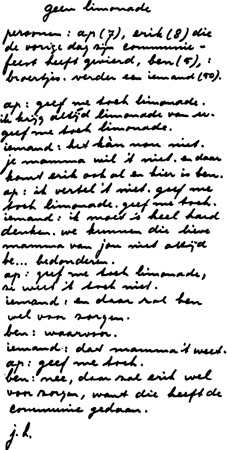 geen limonade
personen: ap (7), erik (8) die
de vorige dag zijn communie-
feest heeft gevierd, ben (5),:
broertjes. verder een iemand (50).
ap: geef me toch limonade.
ik krijg altijd limonade van u.
geef me toch limonade.
iemand: het kàn nou niet.
je mamma wil 't niet. en daar
komt erik ook al en hier is ben.
ap: ik vertel 't niet. geef me
toch limonade. geef me toch.
iemand: ik moet is heel hard
denken. we kunnen die lieve
mamma van jou niet altijd
be... bedonderen.
ap: geef me toch limonade,
ze weet 't toch niet.
iemand: en daar zal ben
wel voor zorgen.
ben: waarvoor.
iemand: dat mamma 't weet.
ap: geef me toch.
ben: nee, daar zal erik wel
voor zorgen, want die heeft de
communie gedaan.
j.h.